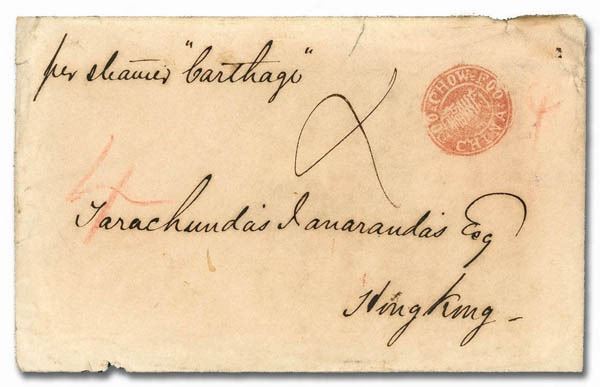 per steamer "Carthage"
FOOCHOW-FOO
CHINA
4
Tarachundas Esq
Hong Kong -